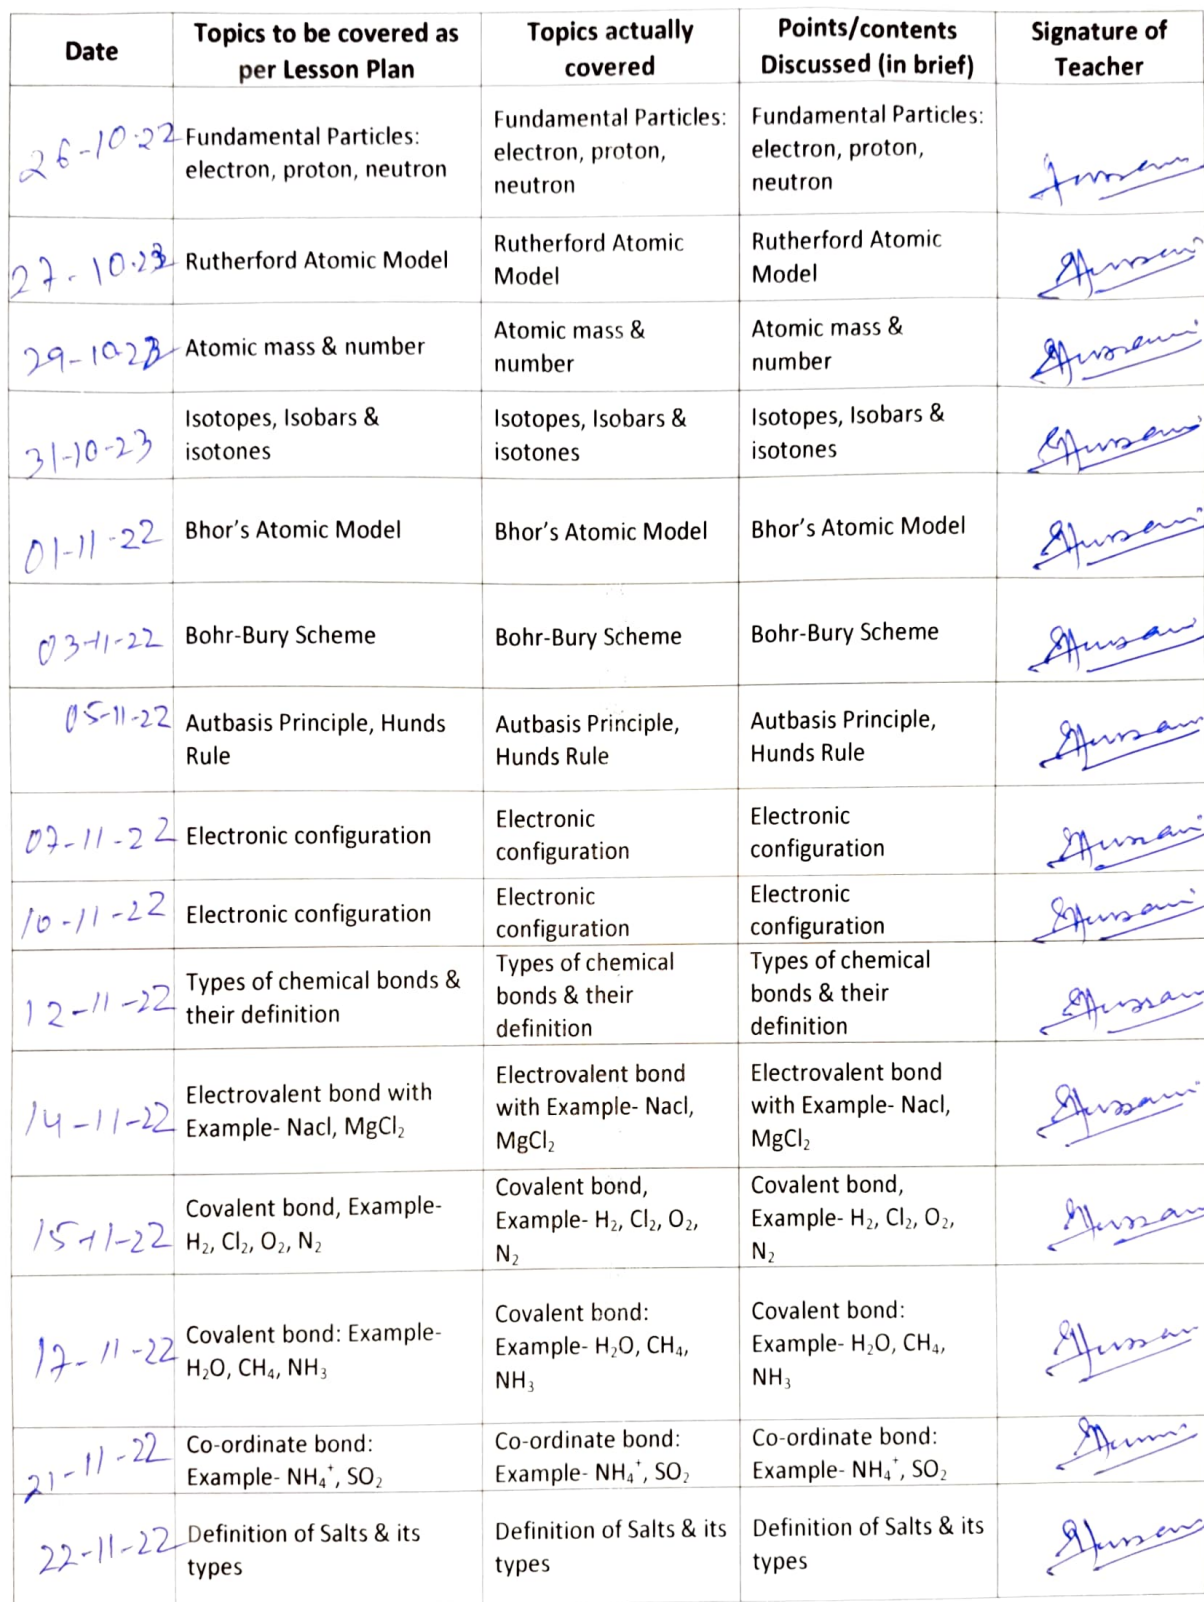 Date
Topics to be covered as
per Lesson Plan
Topics actually
covered
Points/contents
Discussed (in brief)
Signature of
Teacher
26-10-22
Fundamental Particles:
electron, proton, neutron
Fundamental Particles:
electron, proton,
neutron
Fundamental Particles:
electron, proton,
neutron
27-10-23
Rutherford Atomic Model
Rutherford Atomic
Model
Rutherford Atomic
Model
29-10-23
Atomic mass & number
Atomic mass &
number
Atomic mass &
number
31-10-23
Isotopes, Isobars &
isotones
Isotopes, Isobars &
isotones
Isotopes, Isobars &
isotones
01-11-22
Bhor's Atomic Model
Bhor's Atomic Model
Bhor's Atomic Model
03-11-22
Bohr-Bury Scheme
Bohr-Bury Scheme
Bohr-Bury Scheme
05-11-22
Autbasis Principle, Hunds
Rule
Autbasis Principle,
Hunds Rule
Autbasis Principle,
Hunds Rule
07-11-22
Electronic configuration
Electronic
configuration
Electronic
configuration
10-11-22
Electronic configuration
Electronic
configuration
Electronic
configuration
12-11-22
Types of chemical bonds &
their definition
Types of chemical
bonds & their
definition
Types of chemical
bonds & their
definition
14-11-22
Electrovalent bond with
Example- Nacl, MgCl₂
Electrovalent bond
with Example- Nacl,
MgCl₂
Electrovalent bond
with Example- Nacl,
MgCl₂
15-11-22
Covalent bond, Example-
H₂, Cl₂, O₂, N₂
Covalent bond,
Example- H₂, Cl₂, O₂,
N₂
Covalent bond,
Example- H₂, Cl₂, O₂,
N₂
17-11-22
Covalent bond: Example-
H₂O, CH₄, NH₃
Covalent bond:
Example- H₂O, CH₄,
NH₃
Covalent bond:
Example- H₂O, CH₄,
NH₃
21-11-22
Co-ordinate bond:
Example- NH₄⁺, SO₂
Co-ordinate bond:
Example- NH₄⁺, SO₂
Co-ordinate bond:
Example- NH₄⁺, SO₂
22-11-22
Definition of Salts & its
types
Definition of Salts & its
types
Definition of Salts & its
types